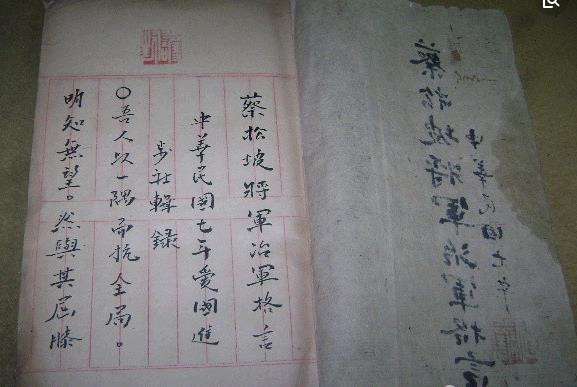 蔡松坡將軍治軍格言
中華民國七年愛國進
步社輯録
〇吾人以一隅而抗全局。
明知無望。然與其屈膝
蔡松坡將軍治軍格言
中華民國七年